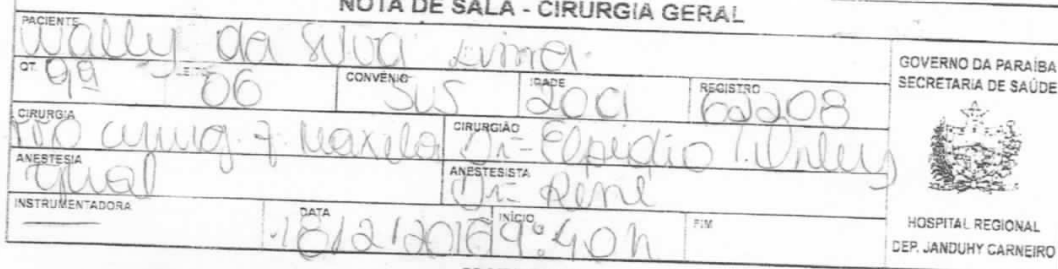 NOTA DE SALA - CIRURGIA GERAL
PACIENTE
Wally da Silva Lima
QT. 09 LEITO 06 CONVÊNIO SUS IDADE 20a REGISTRO 62208
CIRURGIA
Tto cirurg. f. Maxila CIRURGIÃO Dr- Elpidio
ANESTESIA
geral ANESTESISTA Dr- Renê
INSTRUMENTADORA DATA 18/12/2018 INÍCIO 9:40h FIM
GOVERNO DA PARAÍBA
SECRETARIA DE SAÚDE
HOSPITAL REGIONAL
DEP. JANDUHY CARNEIRO